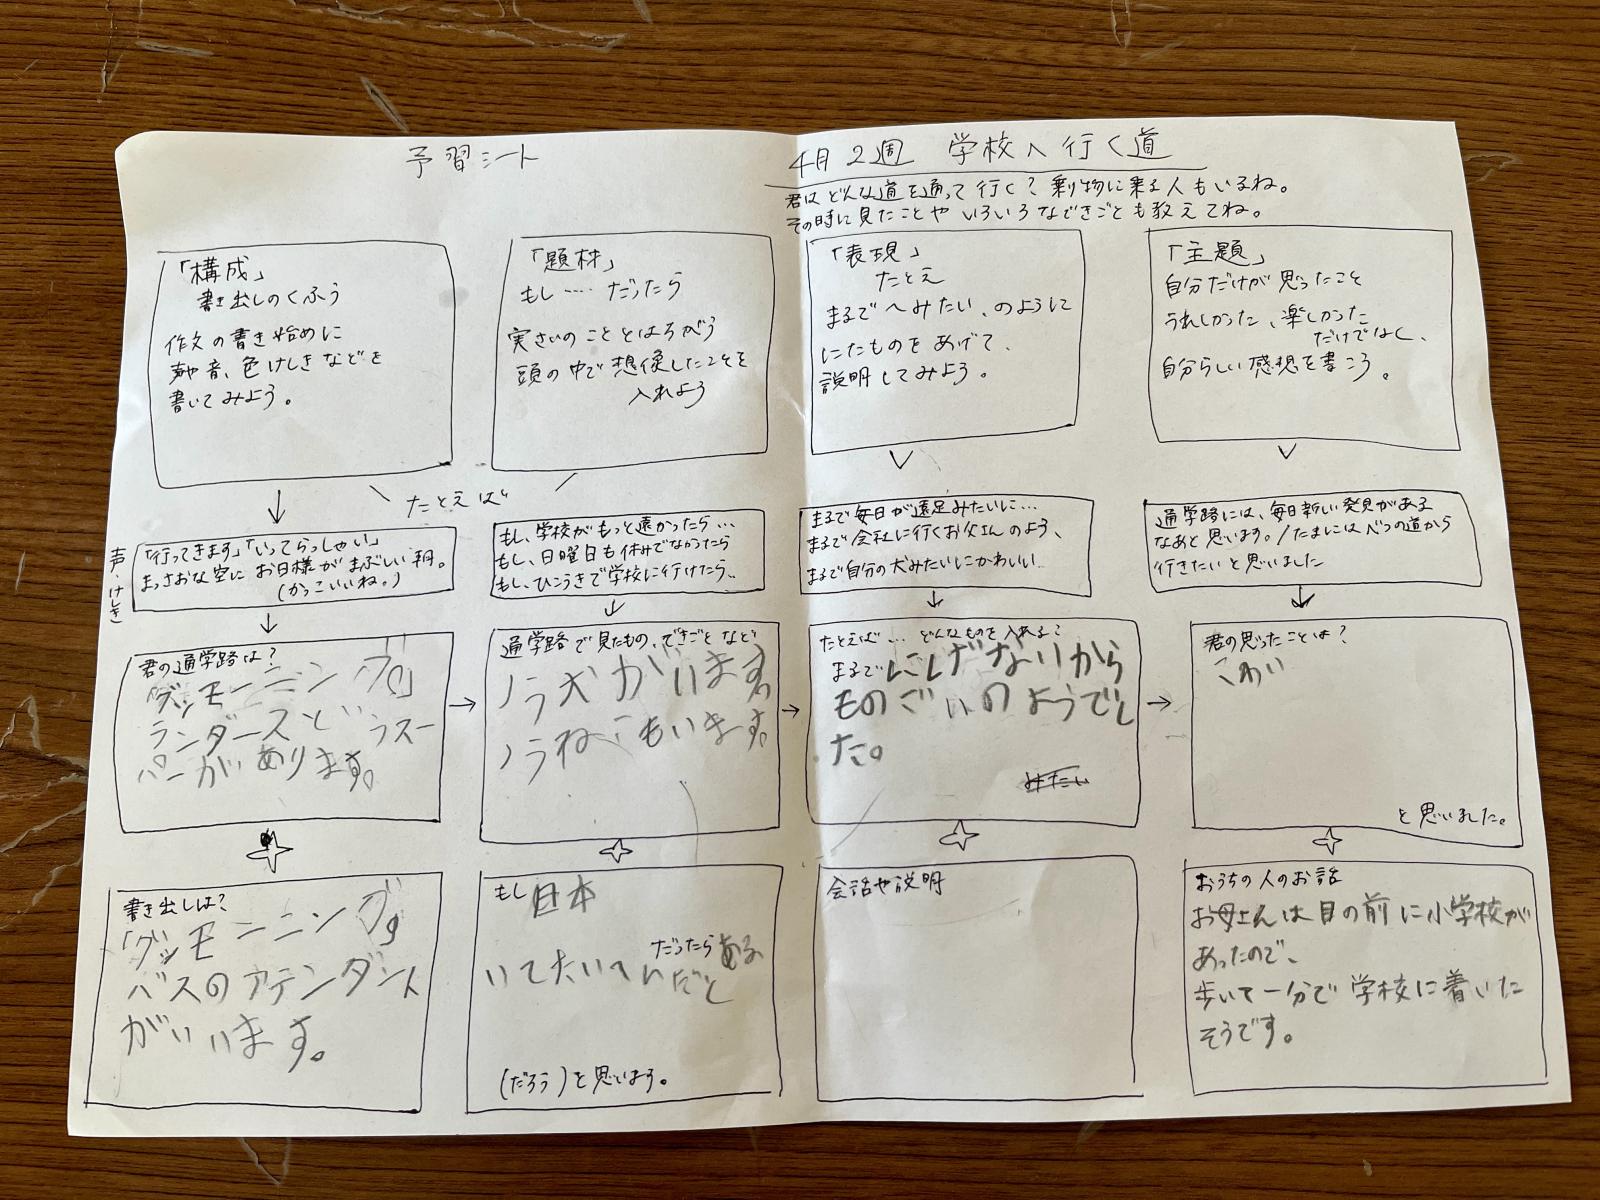 予習シート
4月2週 学校へ行く道
君はどんな道を通って行く?乗物に乗る人もいるね。
その時に見たことやいろいろなできごとも教えてね。
「構成」
書き出しのくふう
作文の書き始めに
声や音、色けしきなどを
書いてみよう。
「題材」
もし……だったら
実さいのこととはちがう
頭の中で想像したことを
入れよう
「表現」
たとえ
まるで〜みたい、のように
にたものをあげて、
説明してみよう。
「主題」
自分だけが思ったこと
うれしかった、楽しかった
だけでなく、
自分らしい感想を書こう。
たとえば
声・けしき
「行ってきます」「いってらっしゃい」
まっさおな空にお日様がまぶしい朝。
(かっこいいね。)
もし、学校がもっと遠かったら…
もし、日曜日も休みでなかったら
もし、ひこうきで学校に行けたら…
まるで毎日が遠足みたいに…
まるで会社に行くお父さんのよう、
まるで自分の犬みたいにかわいい…
通学路には、毎日新しい発見がある
なあと思います。/たまにはべつの道から
行きたいと思いました
君の通学路は?
「グッモーニング」
ランダースというスー
パーがあります。
通学路で見たもの、できごとなど
ノラ犬がいます。
ノラねこもいます。
たとえば… どんなものを入れる?
まるでにげないから
ものごいのようでし
た。
みたい
君の思ったことは?
こわい
と思いました。
書き出しは?
「グッモーニング」
バスのアテンダント
がいます。
もし日本
だったら
いてたいへんだと
(だろう)と思います。
会話や説明
おうちの人のお話
お母さんは目の前に小学校が
あったので、
歩いて一分で学校に着いた
そうです。